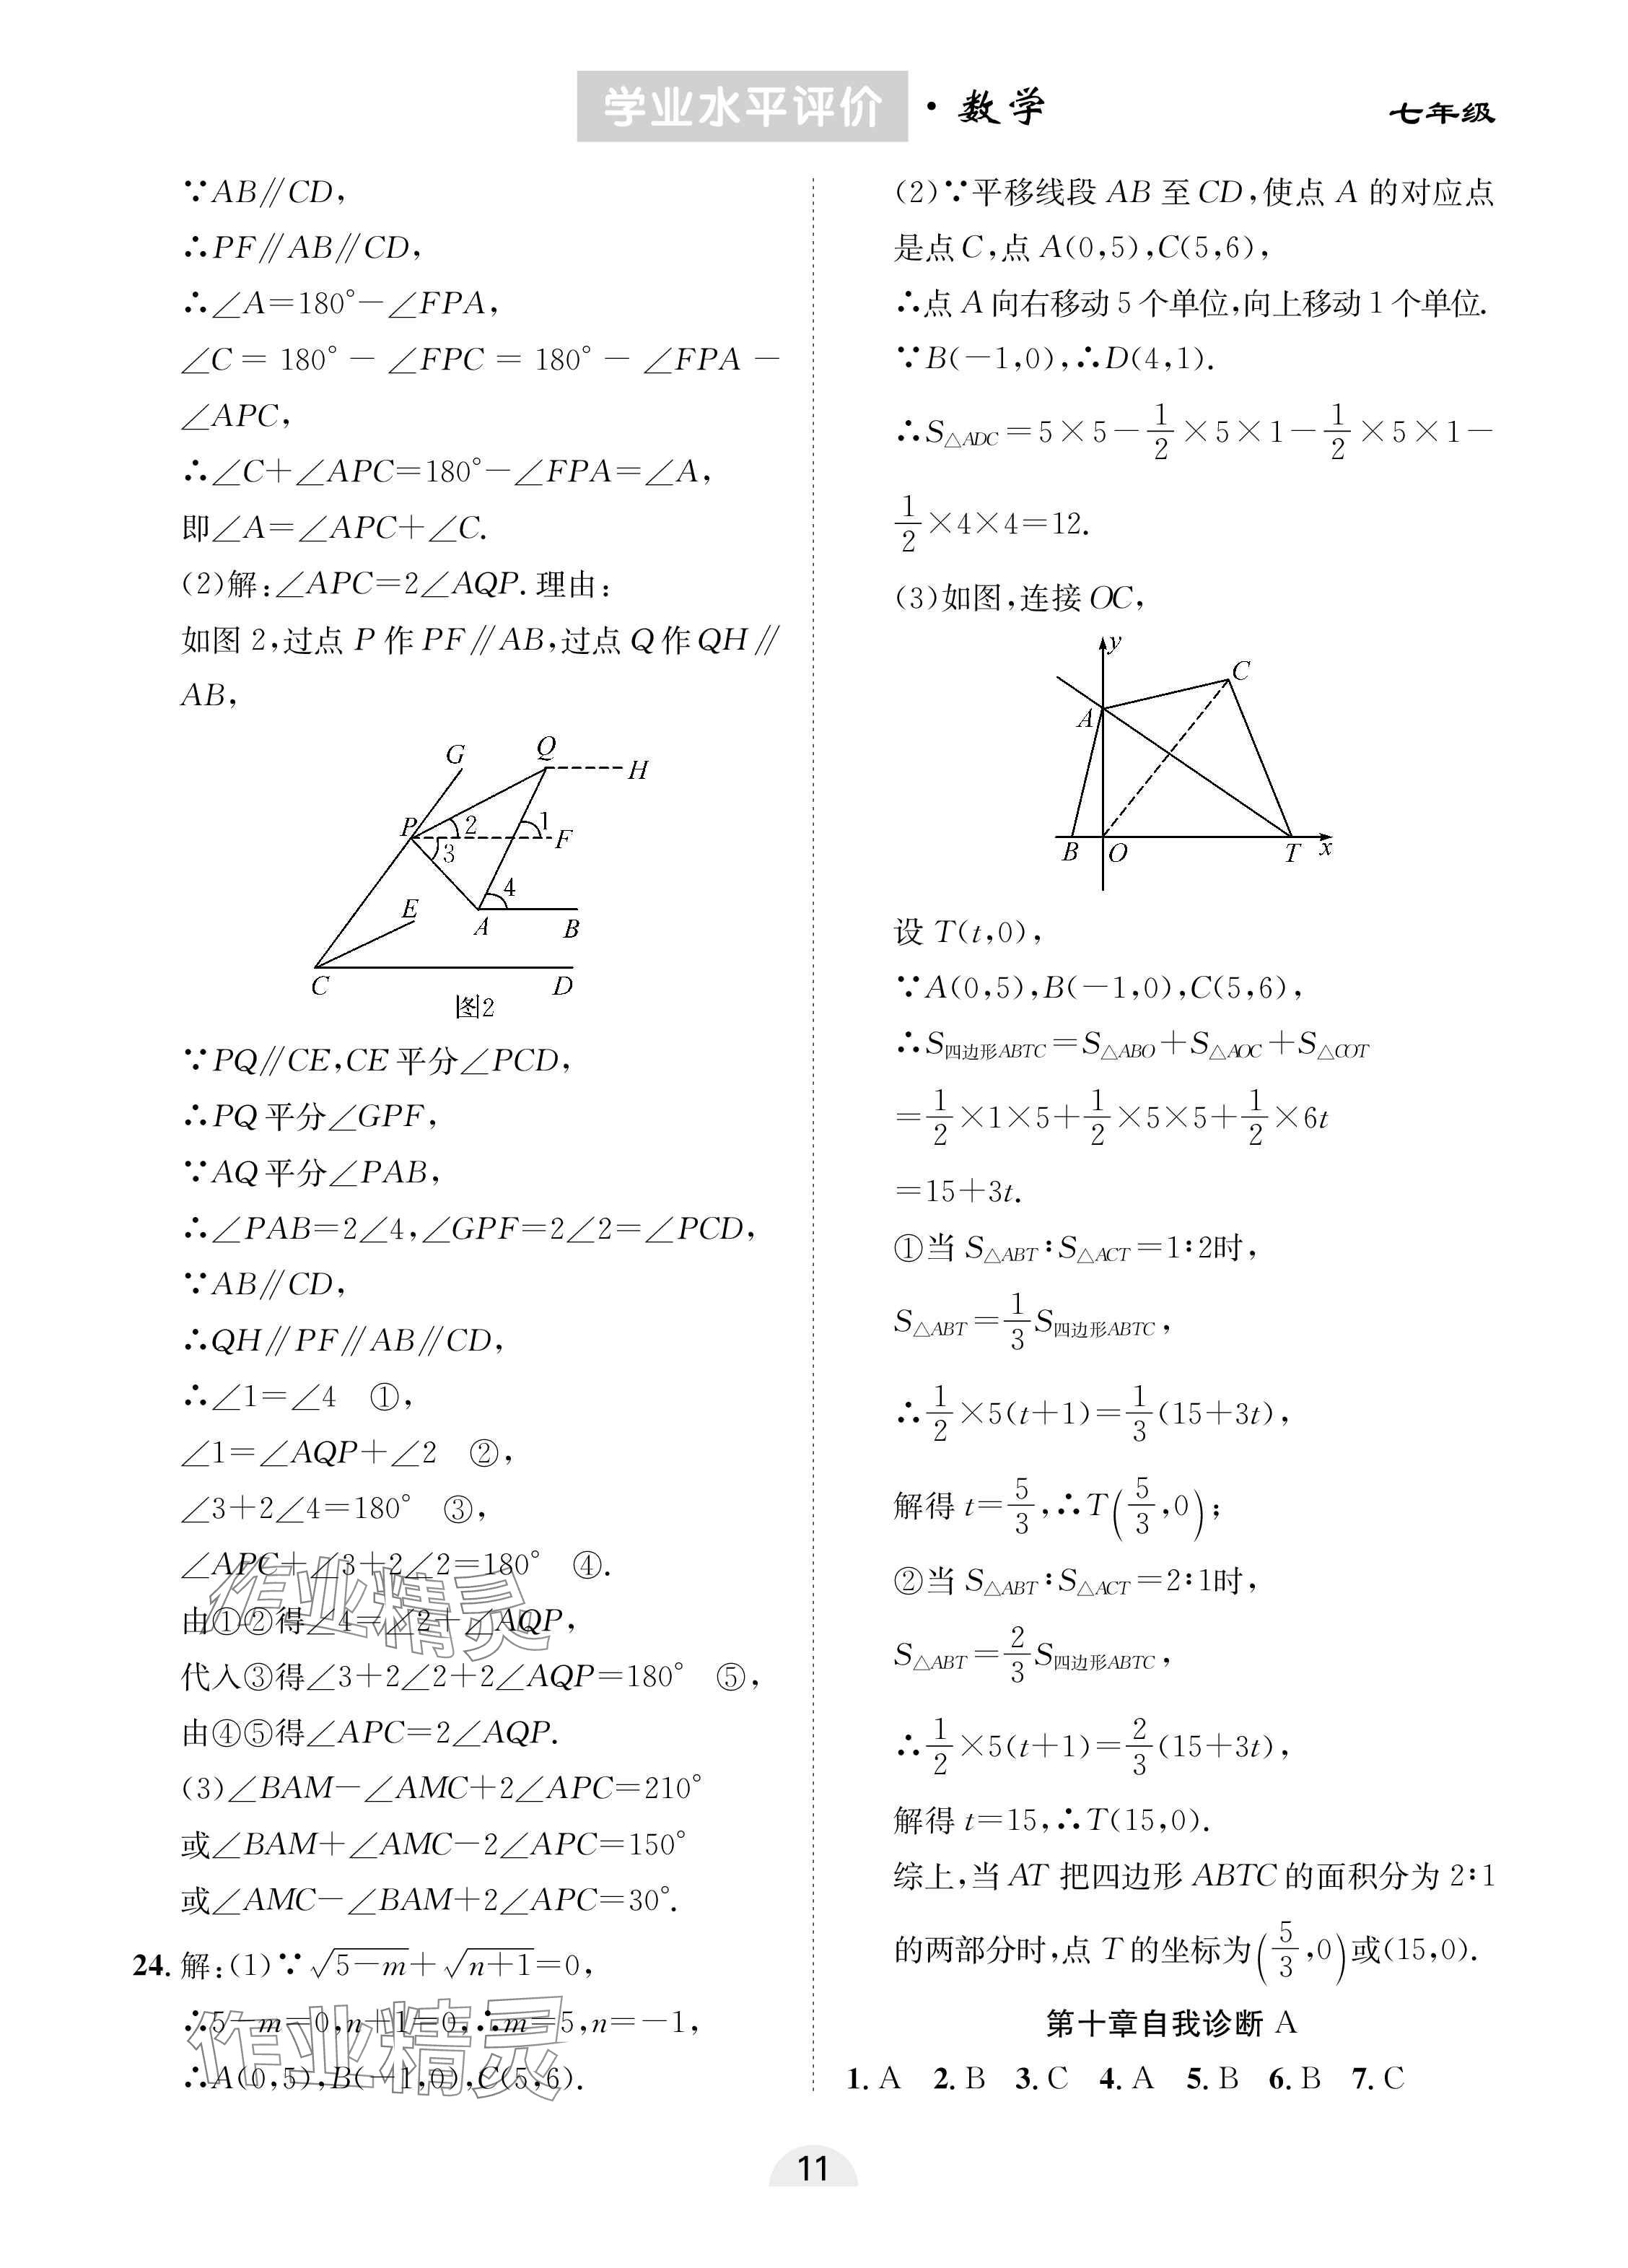 学业水平评价·数学
七年级
∵AB∥CD,
∴PF∥AB∥CD,
∴∠A=180°-∠FPA,
∠C = 180° - ∠FPC = 180° - ∠FPA -
∠APC,
∴∠C+∠APC=180°-∠FPA=∠A,
即∠A=∠APC+∠C.
(2)解:∠APC=2∠AQP.理由:
如图 2,过点 P 作 PF∥AB,过点 Q 作 QH∥
AB,
G
Q
H
P
2
1
F
3
4
E
A
B
C
D
图2
∵PQ∥CE,CE 平分∠PCD,
∴PQ 平分∠GPF,
∵AQ 平分∠PAB,
∴∠PAB=2∠4,∠GPF=2∠2=∠PCD,
∵AB∥CD,
∴QH∥PF∥AB∥CD,
∴∠1=∠4 ①,
∠1=∠AQP+∠2 ②,
∠3+2∠4=180° ③,
∠APC+∠3+2∠2=180° ④.
由①②得∠4=∠2+∠AQP,
代入③得∠3+2∠2+2∠AQP=180° ⑤,
由④⑤得∠APC=2∠AQP.
(3)∠BAM-∠AMC+2∠APC=210°
或∠BAM+∠AMC-2∠APC=150°
或∠AMC-∠BAM+2∠APC=30°.
24. 解:(1)∵√(5-m)+√(n+1)=0,
∴5-m=0,n+1=0,∴m=5,n=-1,
∴A(0,5),B(-1,0),C(5,6).
作业精灵
作业精灵
(2)∵平移线段 AB 至 CD,使点 A 的对应点
是点 C,点 A(0,5),C(5,6),
∴点 A 向右移动 5 个单位,向上移动 1 个单位.
∵B(-1,0),∴D(4,1).
∴S△ADC=5×5-1/2×5×1-1/2×5×1-
1/2×4×4=12.
(3)如图,连接 OC,
y
C
A
B
O
T
x
设 T(t,0),
∵A(0,5),B(-1,0),C(5,6),
∴S四边形ABTC=S△ABO+S△AOC+S△COT
=1/2×1×5+1/2×5×5+1/2×6t
=15+3t.
①当 S△ABT:S△ACT=1:2时,
S△ABT=1/3S四边形ABTC,
∴1/2×5(t+1)=1/3(15+3t),
解得 t=5/3,∴T(5/3,0);
②当 S△ABT:S△ACT=2:1时,
S△ABT=2/3S四边形ABTC,
∴1/2×5(t+1)=2/3(15+3t),
解得 t=15,∴T(15,0).
综上,当 AT 把四边形 ABTC 的面积分为 2:1
的两部分时,点 T 的坐标为(5/3,0)或(15,0).
第十章自我诊断 A
1. A 2. B 3. C 4. A 5. B 6. B 7. C
11